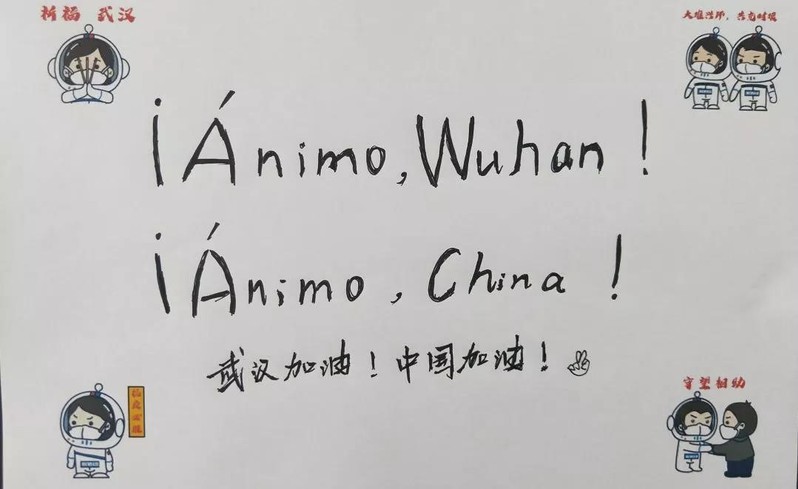 祈福 武汉
大难当前，共克时艰
¡Ánimo, Wuhan!
¡Ánimo, China!
武汉加油！中国加油！
守望相助